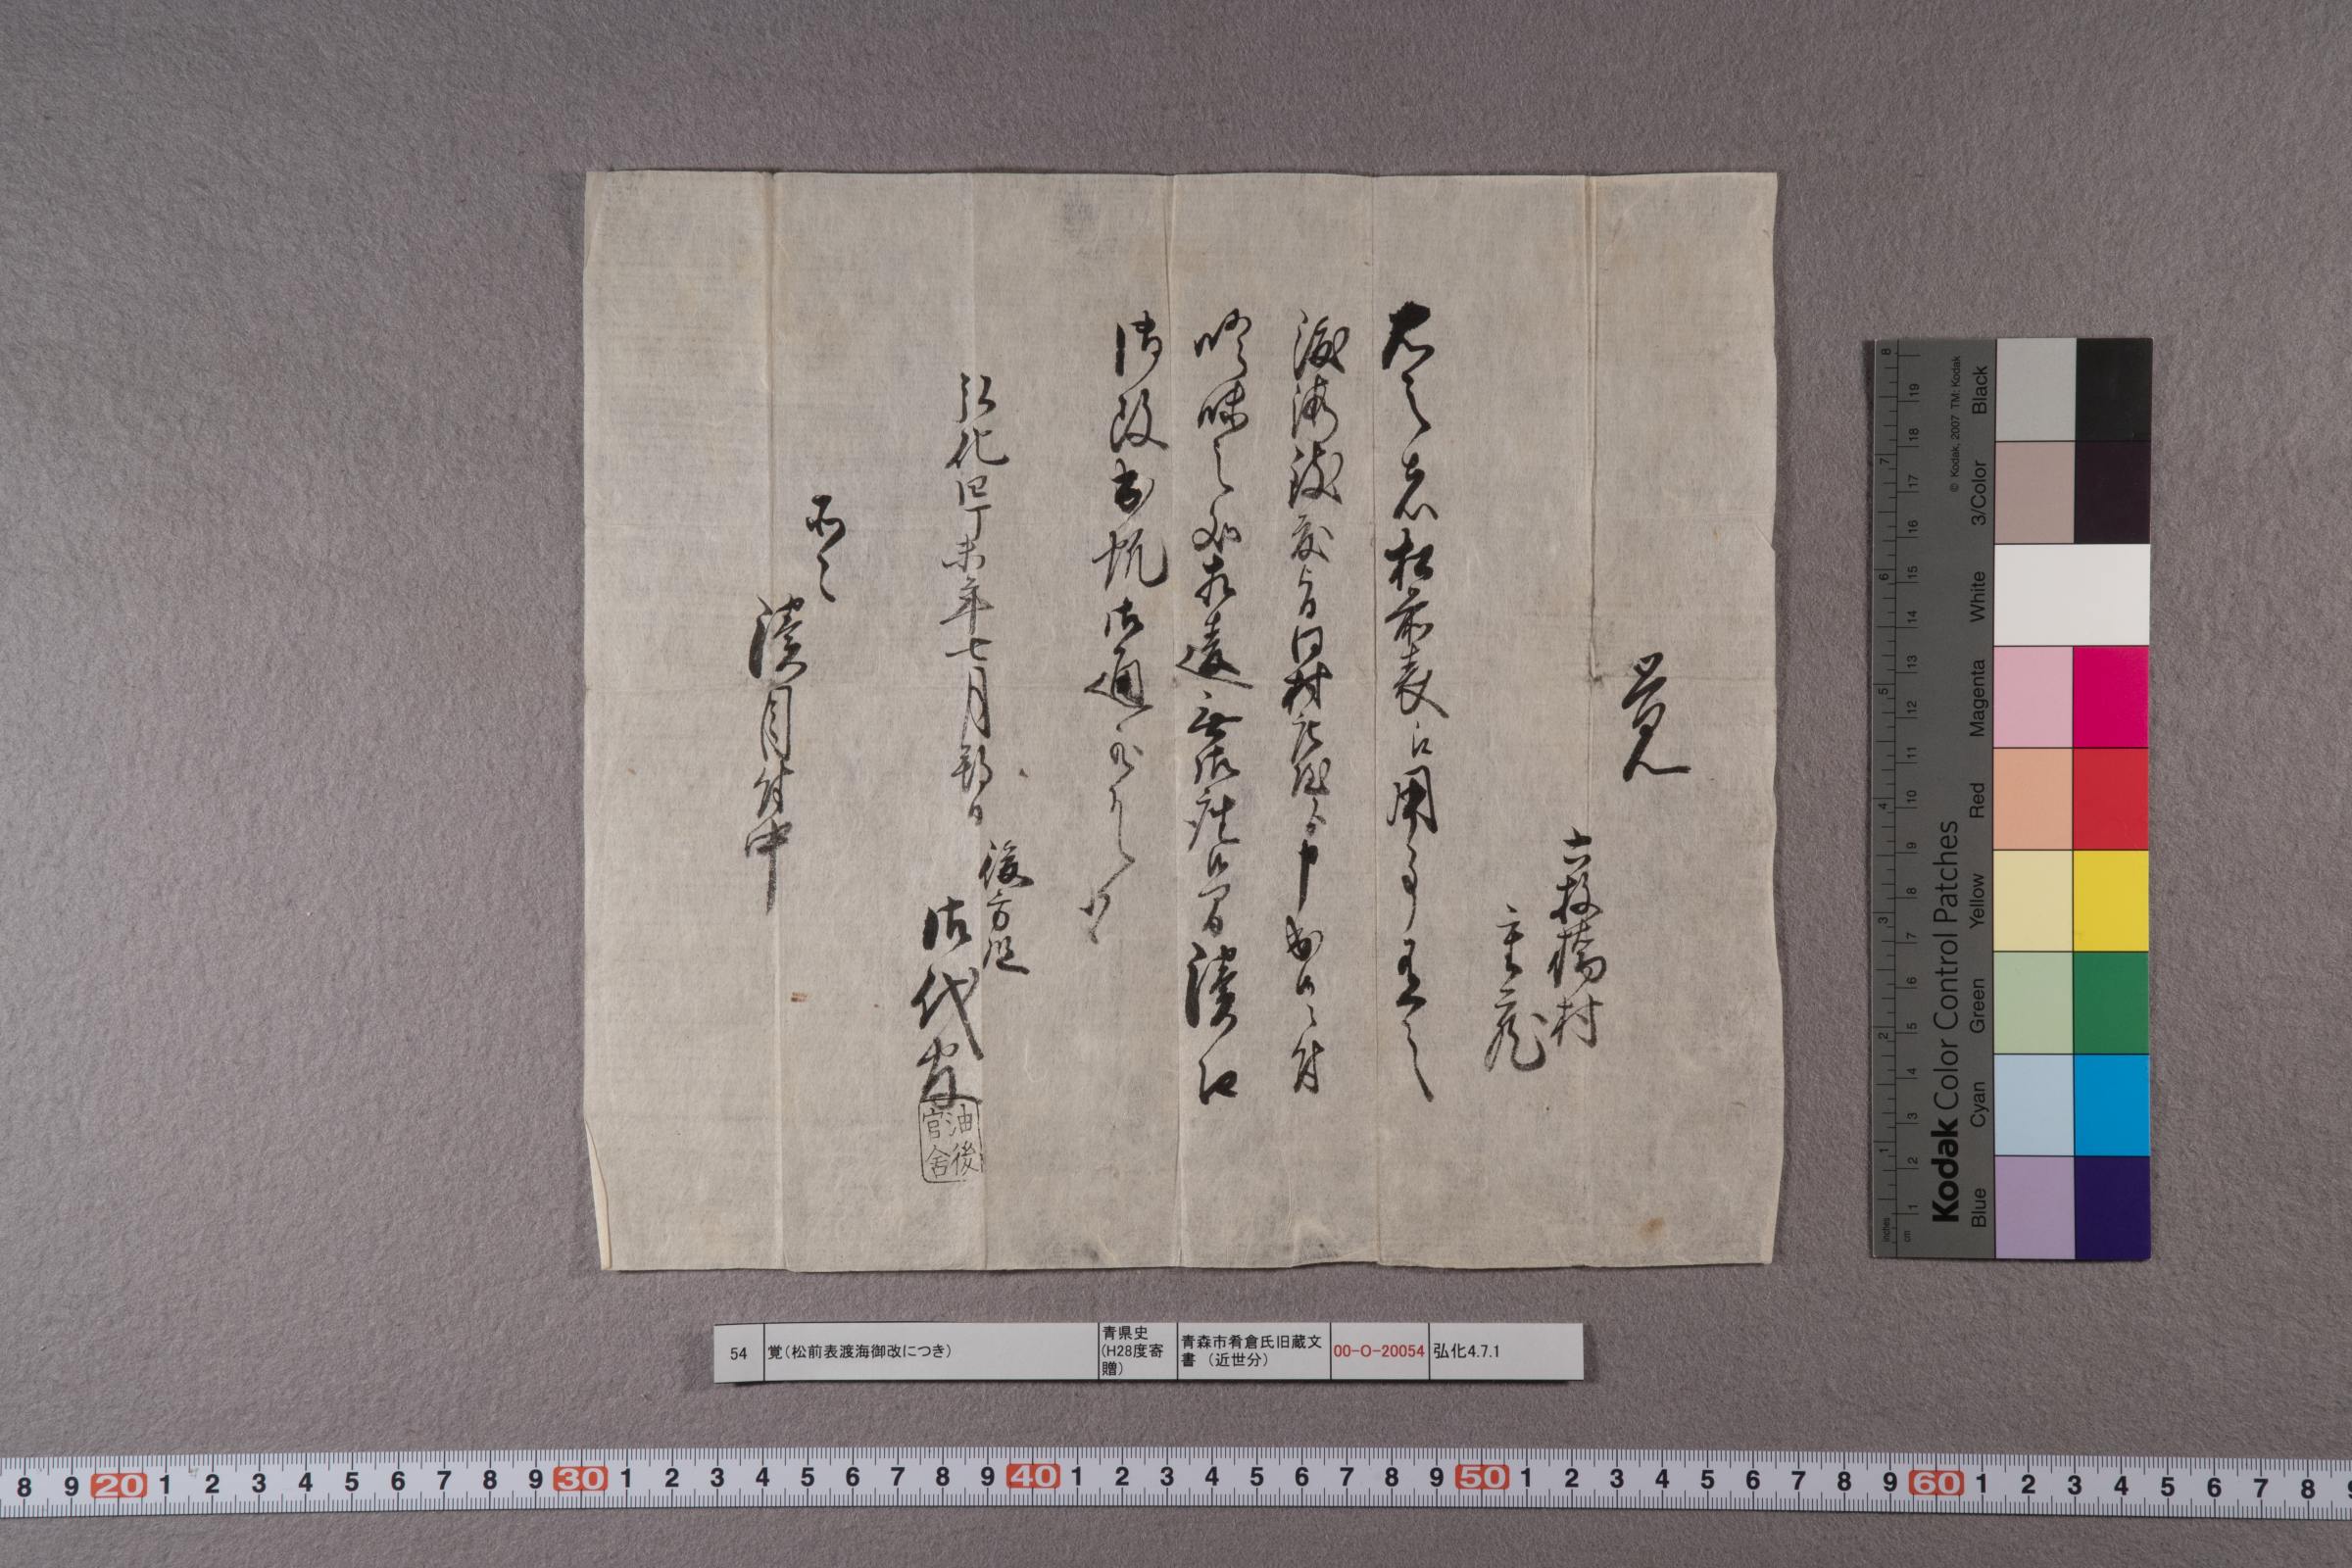 覚
六枚橋村
主蔵
右之者松前表江用事有之
渡海致度旨同村庄屋ゟ申出候ニ付
吟味之処相違無御座候間湊口
御改書札御通可被下候
弘化四丁未年七月朔日
後方㳒
御代官
油後
官舎
所々
湊目付中
54
覚(松前表渡海御改につき)
青県史
(H28度寄
贈)
青森市肴倉氏旧蔵文
書 (近世分)
00-O-20054
弘化4.7.1
Kodak Color Control Patches
© Kodak, 2007 TM: Kodak
Black
3/Color
White
Magenta
Red
Yellow
Green
Cyan
Blue
inches
cm
1 2 3 4 5 6 7 8
1 2 3 4 5 6 7 8 9 10 11 12 13 14 15 16 17 18 19
8 9 20 1 2 3 4 5 6 7 8 9 30 1 2 3 4 5 6 7 8 9 40 1 2 3 4 5 6 7 8 9 50 1 2 3 4 5 6 7 8 9 60 1 2 3 4 5 6 7 8 9